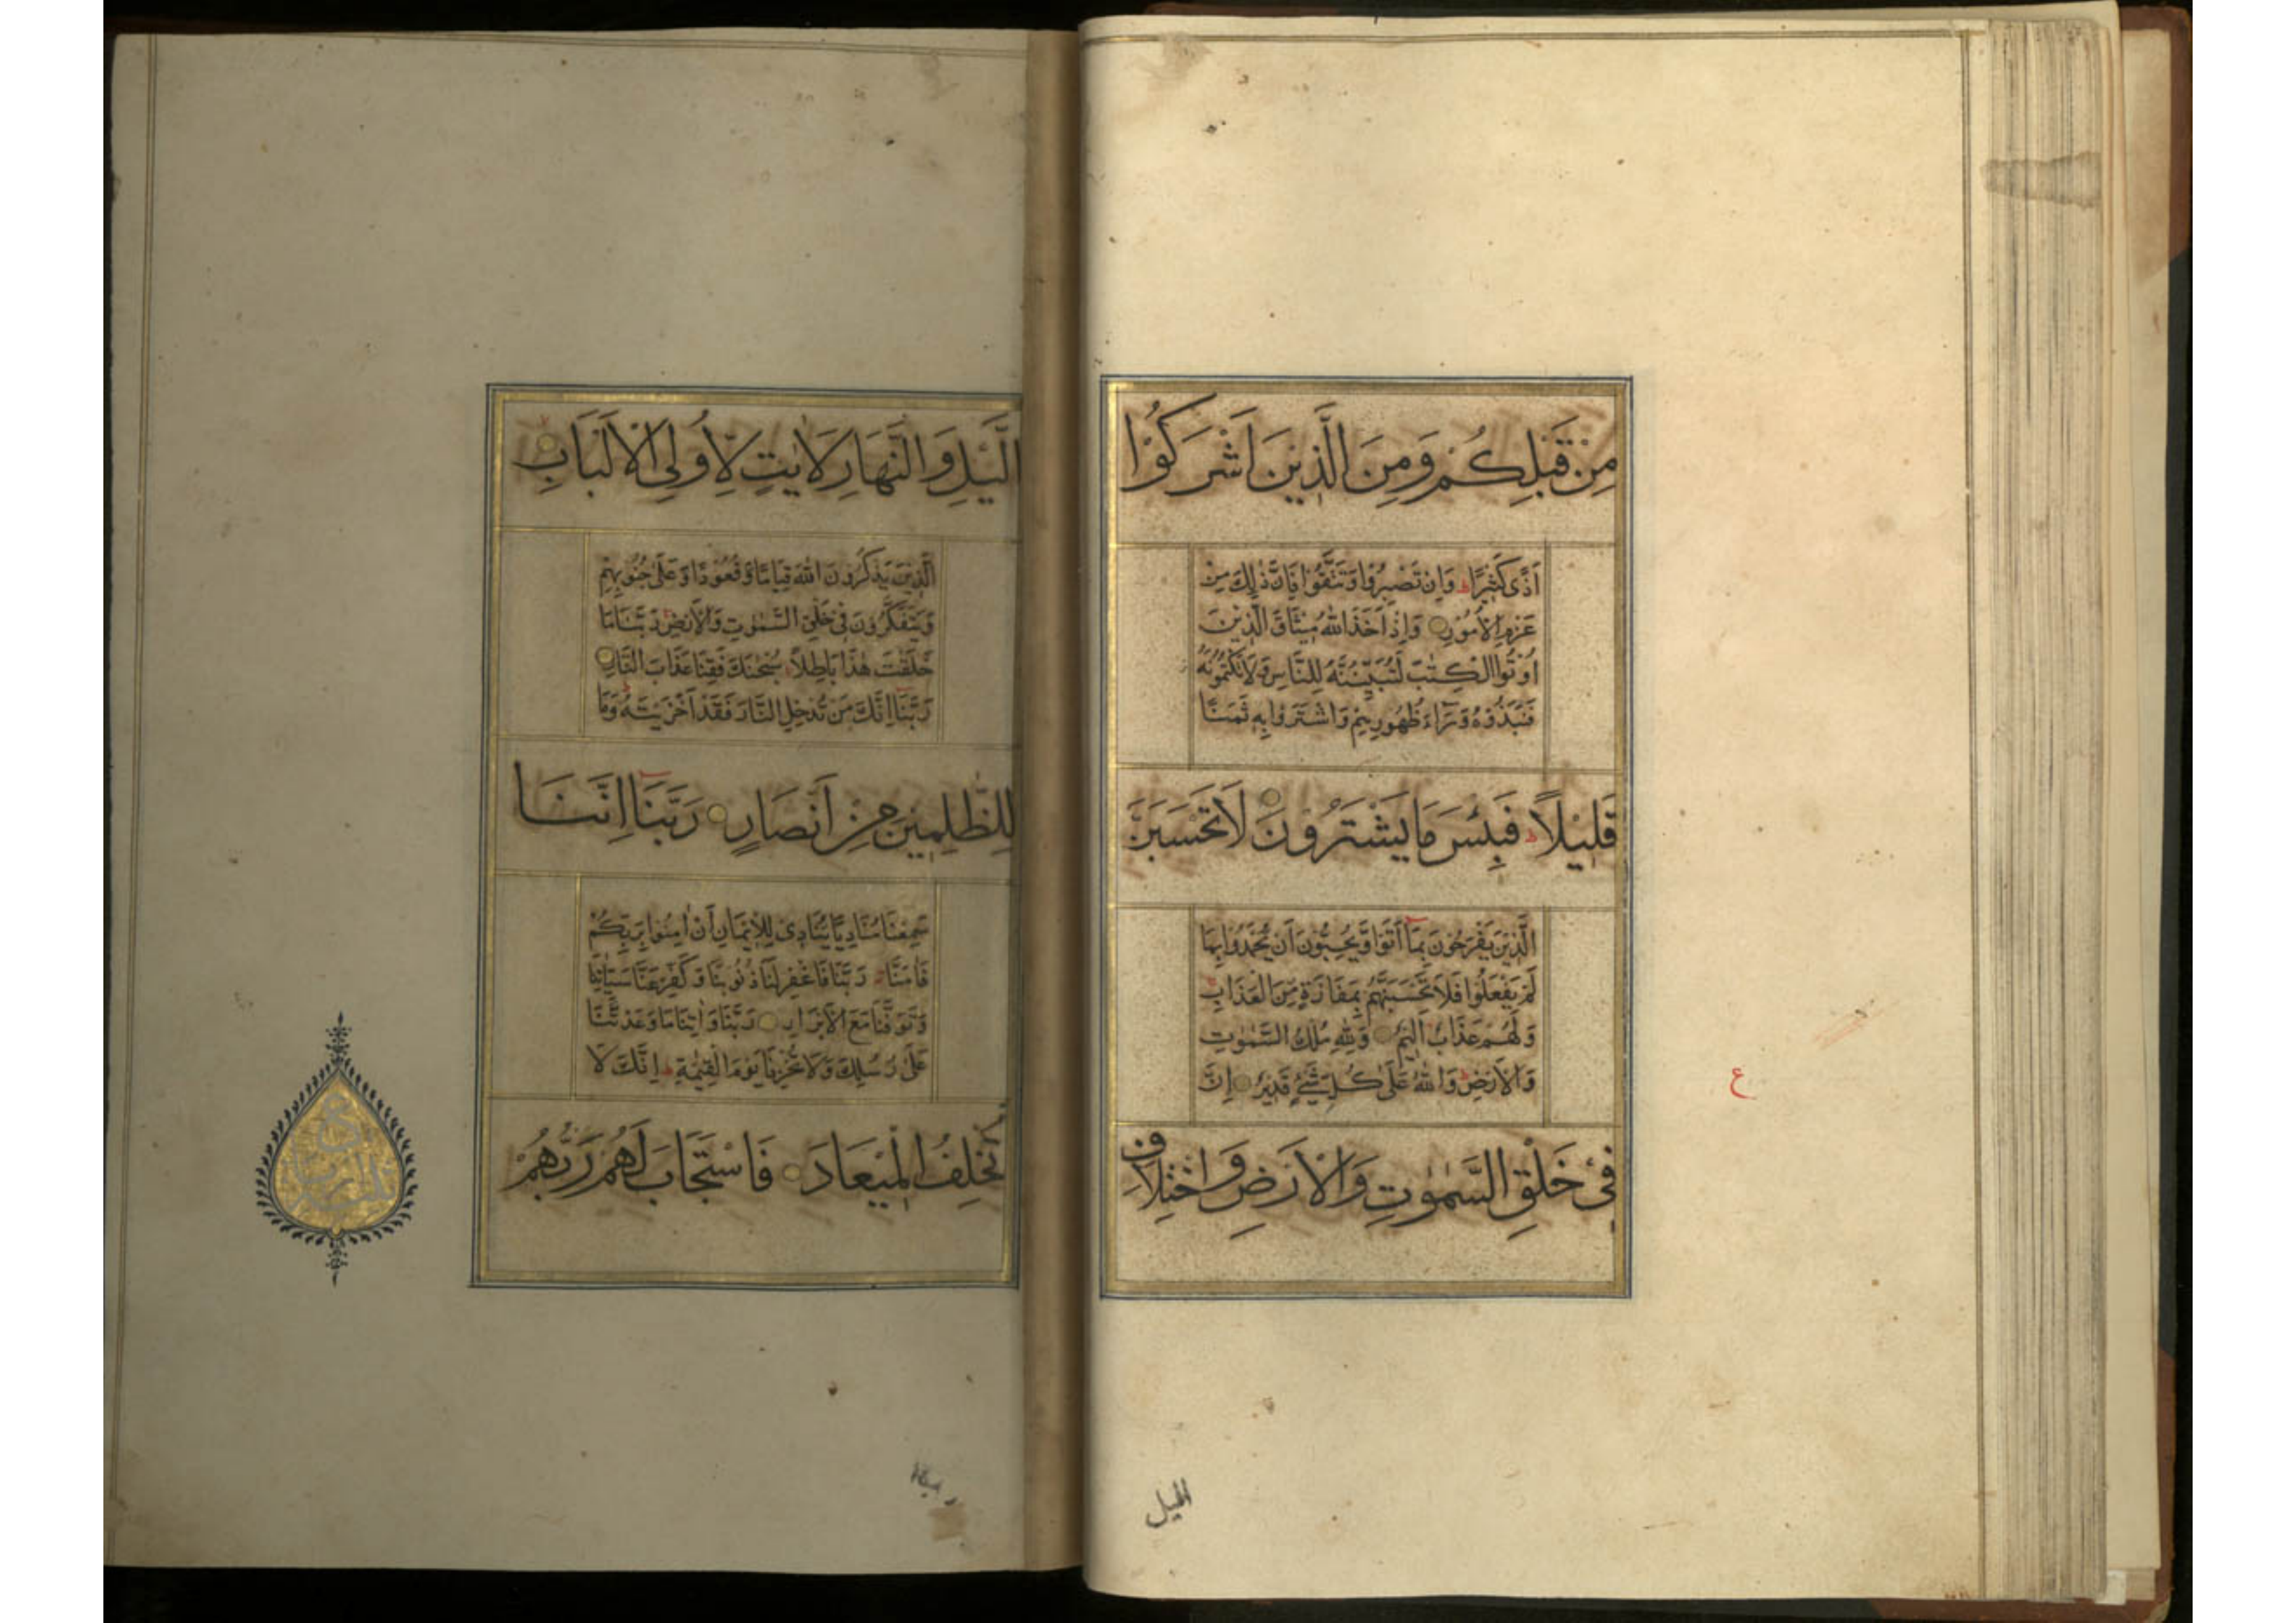 مِنْ قَبْلِكُمْ وَمِنَ الَّذِينَ اَشْرَكُوْا
اَذًى كَثِيْرًا ط وَاِنْ تَصْبِرُوْا وَتَتَّقُوْا فَاِنَّ ذٰلِكَ مِنْ
عَزْمِ الْاُمُوْرِ وَاِذْ اَخَذَ اللّٰهُ مِيْثَاقَ الَّذِيْنَ
اُوْتُوا الْكِتٰبَ لَتُبَيِّنُنَّهُ لِلنَّاسِ وَلَا تَكْتُمُوْنَهُ
فَنَبَذُوْهُ وَرَآءَ ظُهُورِهِمْ وَاشْتَرَوْا بِهٖ ثَمَنًا
قَلِيْلًا ط فَبِئْسَ مَا يَشْتَرُوْنَ لَا تَحْسَبَنَّ
الَّذِيْنَ يَفْرَحُوْنَ بِمَآ اَتَوْا وَّيُحِبُّوْنَ اَنْ يُّحْمَدُوْا بِمَا
لَمْ يَفْعَلُوْا فَلَا تَحْسَبَنَّهُمْ بِمَفَازَةٍ مِّنَ الْعَذَابِ
وَلَهُمْ عَذَابٌ اَلِيْمٌ وَلِلّٰهِ مُلْكُ السَّمٰوٰتِ
وَالْاَرْضِ ط وَاللّٰهُ عَلٰى كُلِّ شَيْءٍ قَدِيْرٌ اِنَّ
فِيْ خَلْقِ السَّمٰوٰتِ وَالْاَرْضِ وَاخْتِلَافِ
ع
الليل
الَّيْلِ وَالنَّهَارِ لَاٰيٰتٍ لِّاُولِى الْاَلْبَابِ
الَّذِيْنَ يَذْكُرُوْنَ اللّٰهَ قِيَامًا وَّقُعُوْدًا وَّعَلٰى جُنُوْبِهِمْ
وَيَتَفَكَّرُوْنَ فِيْ خَلْقِ السَّمٰوٰتِ وَالْاَرْضِ رَبَّنَا مَا
خَلَقْتَ هٰذَا بَاطِلًا سُبْحٰنَكَ فَقِنَا عَذَابَ النَّارِ
رَبَّنَا اِنَّكَ مَنْ تُدْخِلِ النَّارَ فَقَدْ اَخْزَيْتَهُ وَمَا
لِلظّٰلِمِيْنَ مِنْ اَنْصَارٍ رَبَّنَا اِنَّنَا
سَمِعْنَا مُنَادِيًا يُّنَادِيْ لِلْاِيْمَانِ اَنْ اٰمِنُوْا بِرَبِّكُمْ
فَاٰمَنَّا رَبَّنَا فَاغْفِرْ لَنَا ذُنُوْبَنَا وَكَفِّرْ عَنَّا سَيِّاٰتِنَا
وَتَوَفَّنَا مَعَ الْاَبْرَارِ رَبَّنَا وَاٰتِنَا مَا وَعَدْتَّنَا
عَلٰى رُسُلِكَ وَلَا تُخْزِنَا يَوْمَ الْقِيٰمَةِ ط اِنَّكَ لَا
تُخْلِفُ الْمِيْعَادَ فَاسْتَجَابَ لَهُمْ رَبُّهُمْ